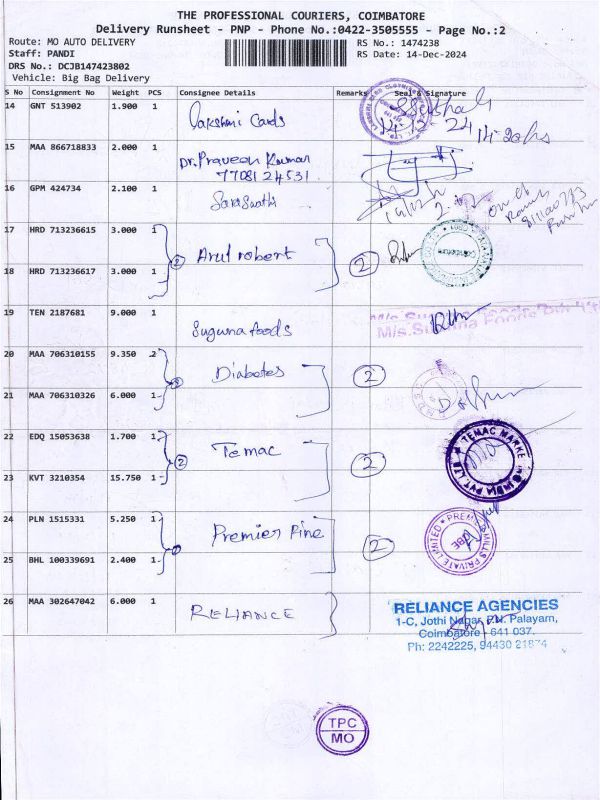 THE PROFESSIONAL COURIERS, COIMBATORE
Delivery Runsheet - PNP - Phone No.:0422-3505555 - Page No.:2
Route: MO AUTO DELIVERY
RS No.: 1474238
Staff: PANDI
RS Date: 14-Dec-2024
DRS No.: DCJB147423802
Vehicle: Big Bag Delivery
S No Consignment No Weight PCS Consignee Details Remarks Seal & Signature
14 GNT 513902 1.900 1 Lakshmi Cards
14-20hs
15 MAA 866718833 2.000 1 Dr. Praveen Kumar
7708124531
16 GPM 424734 2.100 1 Saraswathi
17 HRD 713236615 3.000 1
2 Arul robert 2
18 HRD 713236617 3.000 1
19 TEN 2187681 9.000 1 Suguna foods
M/s. Suguna Foods
20 MAA 706310155 9.350 2
Diabetes 2
21 MAA 706310326 6.000 1
22 EDQ 15053638 1.700 1
2 Temac 2
TEMAC MARKETING INDIA PVT. LTD
23 KVT 3210354 15.750 1
24 PLN 1515331 5.250 1
Premier Fine 2
PREMIER MILLS PRIVATE LIMITED
25 BHL 100339691 2.400 1
26 MAA 302647042 6.000 1 RELIANCE
RELIANCE AGENCIES
1-C, Jothi Nagar, P.N. Palayam,
Coimbatore - 641 037.
Ph: 2242225, 94430 21874
TPC
MO